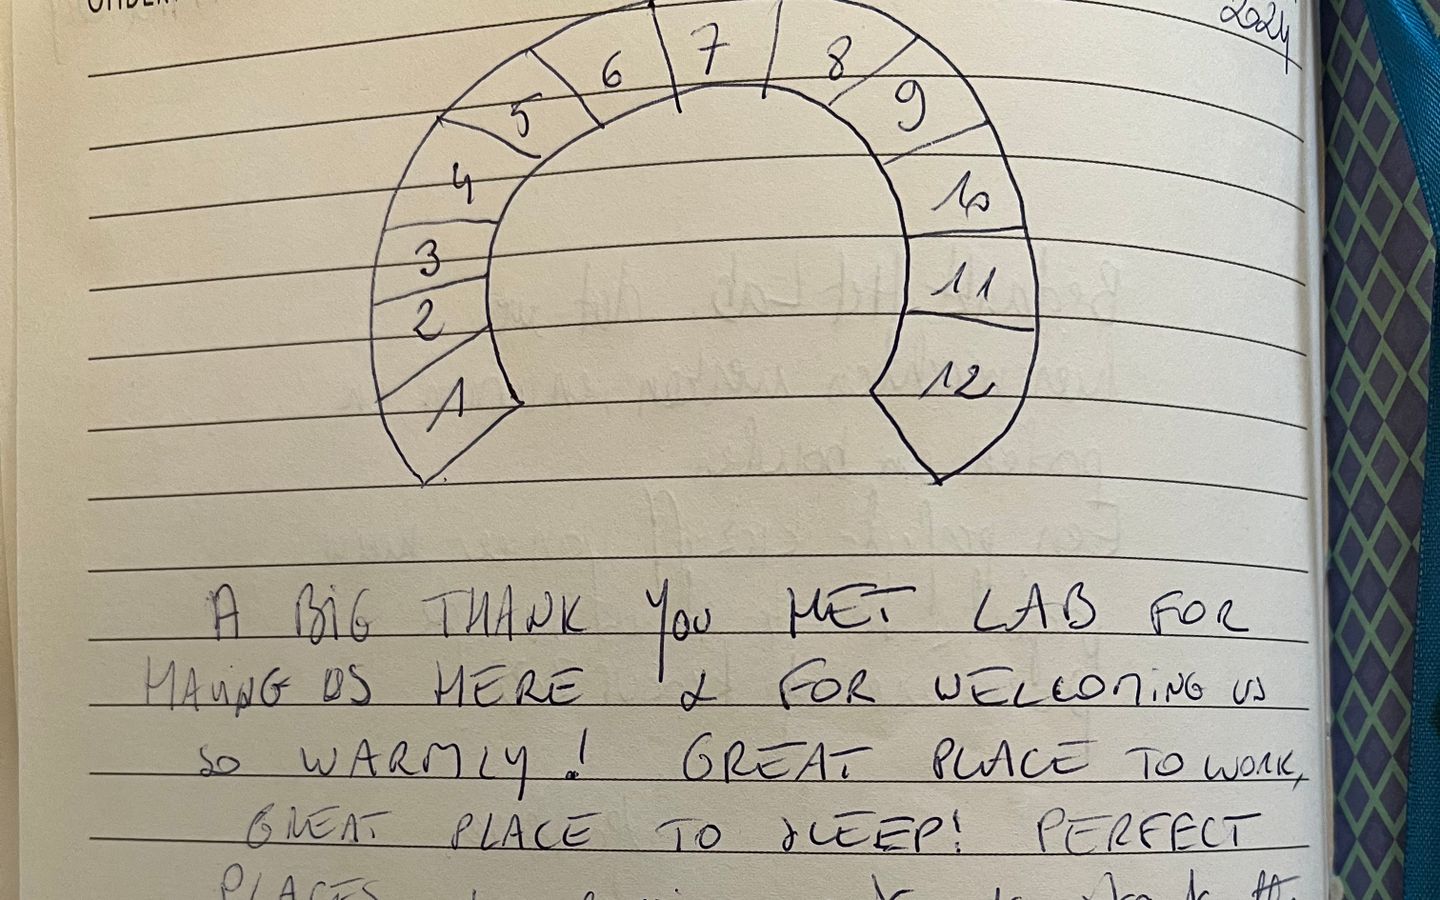 2024
7
6 8
5 9
4 10
3 11
2
1 12
A BIG THANK YOU HET LAB FOR
HAVING US HERE & FOR WELCOMING US
SO WARMLY! GREAT PLACE TO WORK,
GREAT PLACE TO SLEEP! PERFECT
PLACES